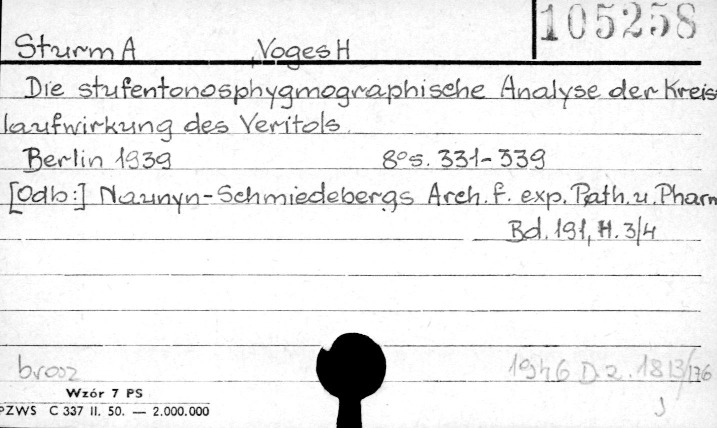 105258
Sturm A , Voges H
Die stufentonosphygmographische Analyse der Kreis
laufwirkung des Veritols.
Berlin 1939 8° s. 331-339
[Odb:] Naunyn-Schmiedebergs Arch. f. exp. Path. u. Pharm
Bd. 191, H. 3/4
brosz 1946 D z. 1813/176
Wzór 7 PS
PZWS C 337 II. 50. — 2.000.000